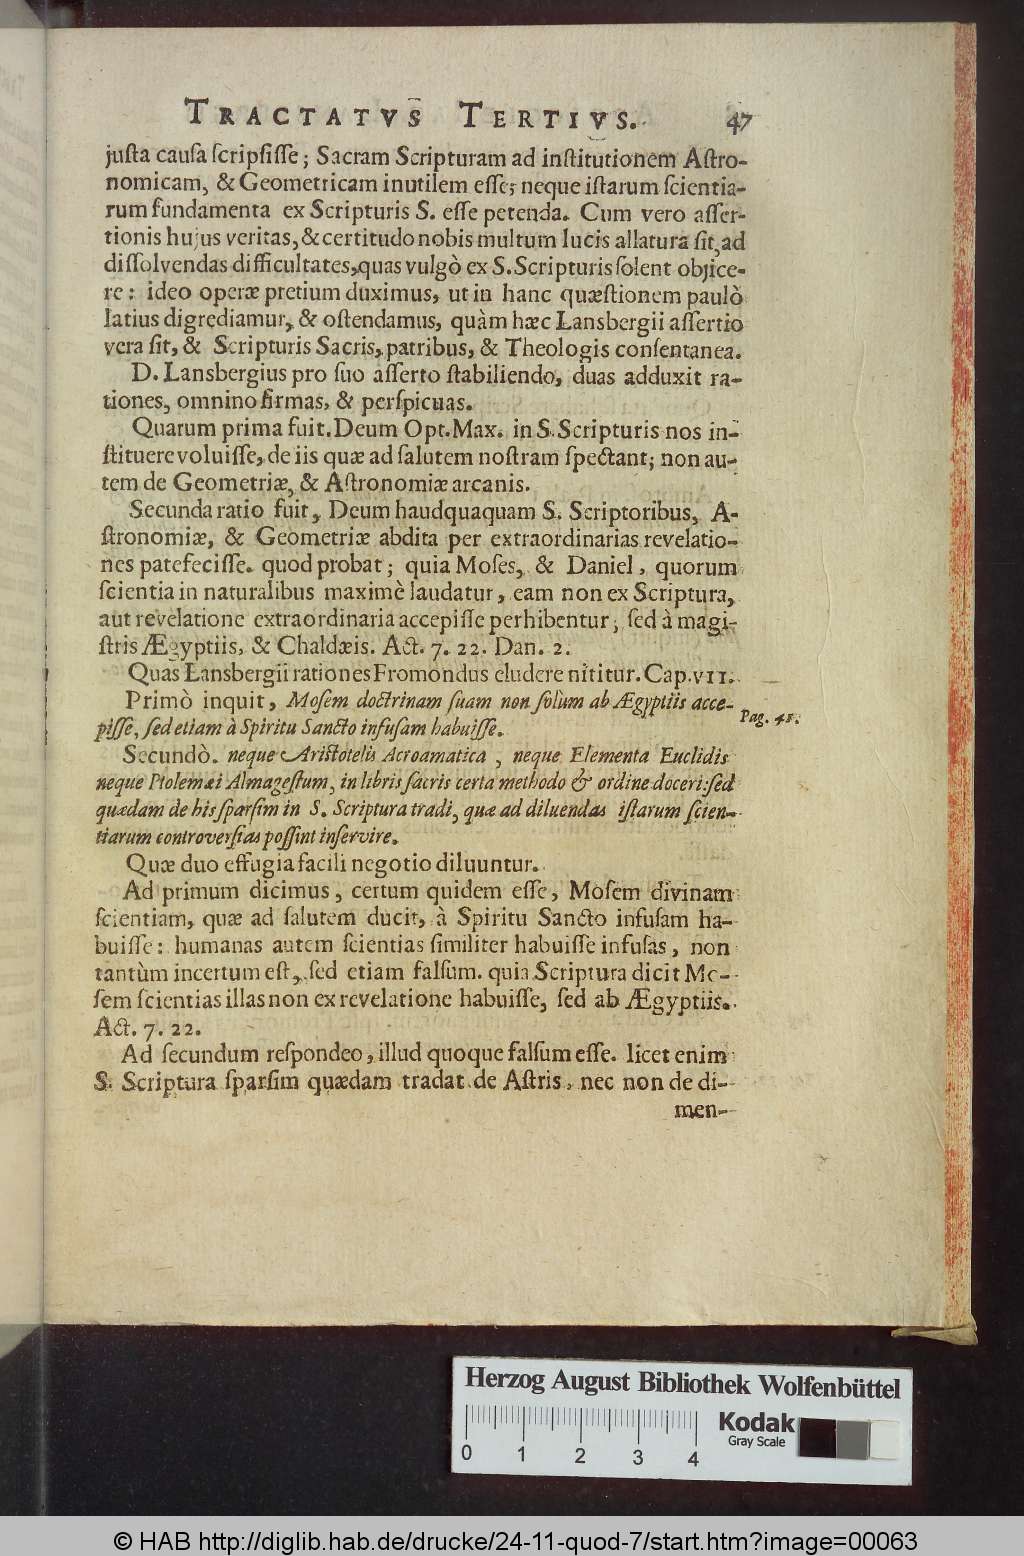 TRACTATVS TERTIVS. 47
juſta cauſa ſcripſiſſe; Sacram Scripturam ad inſtitutionem Aſtro-
nomicam, & Geometricam inutilem eſſe; neque iſtarum ſcientia-
rum fundamenta ex Scripturis S. eſſe petenda. Cum vero aſſer-
tionis hujus veritas, & certitudo nobis multum lucis allatura ſit, ad
diſſolvendas difficultates, quas vulgò ex S. Scripturis ſolent objice-
re: ideo operæ pretium duximus, ut in hanc quæſtionem paulò
latius digrediamur, & oſtendamus, quàm hæc Lansbergii aſſertio
vera ſit, & Scripturis Sacris, patribus, & Theologis conſentanea.
D. Lansbergius pro ſuo aſſerto ſtabiliendo, duas adduxit ra-
tiones, omnino firmas, & perſpicuas.
Quarum prima fuit. Deum Opt. Max. in S. Scripturis nos in-
ſtituere voluiſſe, de iis quæ ad ſalutem noſtram ſpectant; non au-
tem de Geometriæ, & Aſtronomiæ arcanis.
Secunda ratio fuit, Deum haudquaquam S. Scriptoribus, A-
ſtronomiæ, & Geometriæ abdita per extraordinarias revelatio-
nes patefeciſſe. quod probat; quia Moſes, & Daniel, quorum
ſcientia in naturalibus maximè laudatur, eam non ex Scriptura,
aut revelatione extraordinaria accepiſſe perhibentur, ſed à magi-
ſtris Ægyptiis, & Chaldæis. Act. 7. 22. Dan. 2.
Quas Lansbergii rationes Fromondus eludere nititur. Cap. VII.
Primò inquit, Moſem doctrinam ſuam non ſolùm ab Ægyptiis acce-
piſſe, ſed etiam à Spiritu Sancto infuſam habuiſſe.
Pag. 45.
Secundò. neque Ariſtotelis Acroamatica, neque Elementa Euclidis
neque Ptolemæi Almageſtum, in libris ſacris certa methodo & ordine doceri: ſed
quædam de his ſparſim in S. Scriptura tradi, quæ ad diluendas iſtarum ſcien-
tiarum controverſias poſſint inſervire.
Quæ duo effugia facili negotio diluuntur.
Ad primum dicimus, certum quidem eſſe, Moſem divinam
ſcientiam, quæ ad ſalutem ducit, à Spiritu Sancto infuſam ha-
buiſſe: humanas autem ſcientias ſimiliter habuiſſe infuſas, non
tantùm incertum eſt, ſed etiam falſum. quia Scriptura dicit Mo-
ſem ſcientias illas non ex revelatione habuiſſe, ſed ab Ægyptiis.
Act. 7. 22.
Ad ſecundum reſpondeo, illud quoque falſum eſſe. licet enim
S. Scriptura ſparſim quædam tradat de Aſtris, nec non de di-
men-
Herzog August Bibliothek Wolfenbüttel
Kodak
Gray Scale
0 1 2 3 4
© HAB http://diglib.hab.de/drucke/24-11-quod-7/start.htm?image=00063